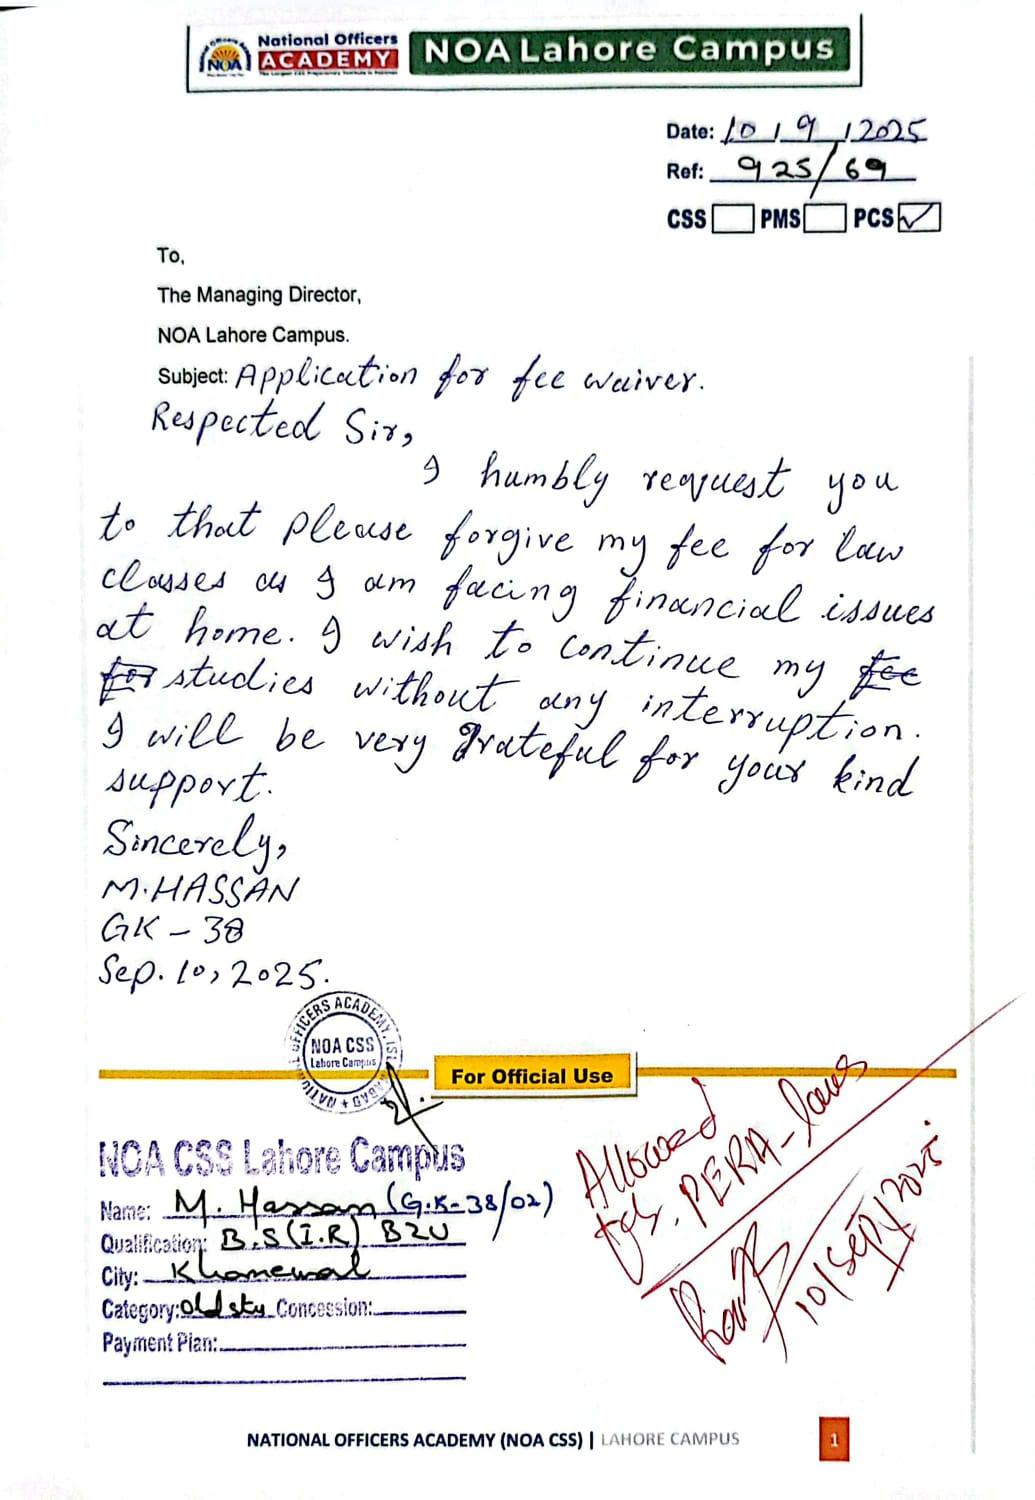 National Officers
ACADEMY
NOA
NOA Lahore Campus
Date: 10 / 9 / 2025
Ref: 925/69
CSS PMS PCS ✓
To,
The Managing Director,
NOA Lahore Campus.
Subject: Application for fee waiver.
Respected Sir,
I humbly request you
to that please forgive my fee for law
classes as I am facing financial issues
at home. I wish to continue my fee
for studies without any interruption.
I will be very grateful for your kind
support.
Sincerely,
M.HASSAN
GK - 38
Sep. 10, 2025.
NOA CSS
Lahore Campus
For Official Use
NOA CSS Lahore Campus
Name: M. Hassan (G.K-38/02)
Qualification: B.S (I.R) BZU
City: Khanewal
Category: Old stu Concession:
Payment Plan:
Allowed
PERA-laws
10/Sept/2025
NATIONAL OFFICERS ACADEMY (NOA CSS) | LAHORE CAMPUS
1